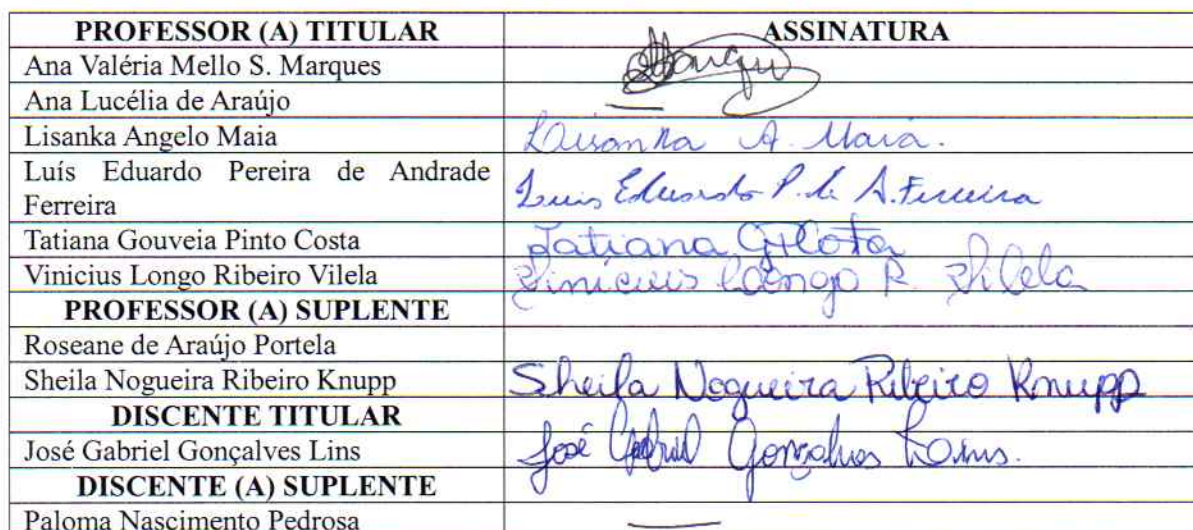 PROFESSOR (A) TITULAR ASSINATURA
Ana Valéria Mello S. Marques
Ana Lucélia de Araújo —
Lisanka Angelo Maia Lisanka A. Maia.
Luís Eduardo Pereira de Andrade
Ferreira Luis Eduardo P. de A. Ferreira
Tatiana Gouveia Pinto Costa Tatiana G P Costa
Vinicius Longo Ribeiro Vilela Vinicius Longo R. Vilela
PROFESSOR (A) SUPLENTE
Roseane de Araújo Portela
Sheila Nogueira Ribeiro Knupp Sheila Nogueira Ribeiro Knupp
DISCENTE TITULAR
José Gabriel Gonçalves Lins José Gabriel Gonçalves Lins.
DISCENTE (A) SUPLENTE
Paloma Nascimento Pedrosa —